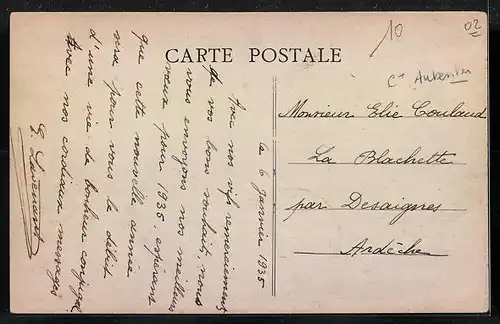 10
02
CARTE POSTALE
Cne Aubenton
Le 6 janvier 1935
Avec nos vifs remerciements
de vos bons souhaits, nous
vous envoyons nos meilleurs
vœux pour 1935, espérant
que cette nouvelle année
sera pour vous le début
d'une vie de bonheur conjugal
Avec nos cordiaux messages
Monsieur Elie Coulaud
La Blachette
par Desaignes
Ardèche